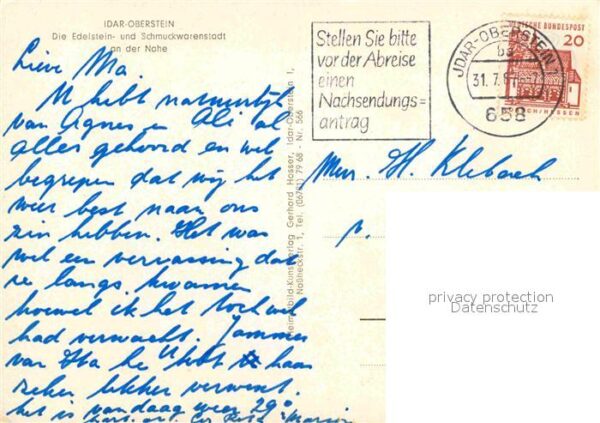 IDAR-OBERSTEIN
Die Edelstein- und Schmuckwarenstadt
an der Nahe
Lieve Ma,
U hebt natuurlijk
van Agnes en Ali al
alles gehoord en wel
begrepen dat wij het
weer best naar ons
zin hebben. Het was
wel een verrassing dat
ze langs kwamen
hoewel ik het toch wel
had verwacht. Jammer
van Ha he U hebt haar
zeker lekker verwent.
het is vandaag weer 29°
Stellen Sie bitte
vor der Abreise
einen
Nachsendungs=
antrag
IDAR-OBERSTEIN
31.7.
658
DEUTSCHE BUNDESPOST
20
HESSEN
Mevr. H. Klebach
p.
Heimatbild-Kunstverlag Gerhard Hosser, Idar-Oberstein 1,
Naßheckstr. 1, Tel. (06781) 79 68 - Nr. 566
privacy protection
Datenschutz